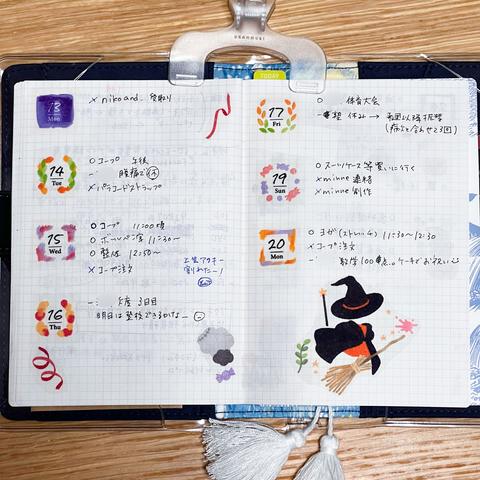 TODAY
13
Mon
× niko and... 受取り
14
Tue
○ コープ 午後
腹痛で休
× パラコードストラップ
15
Wed
○ コープ 11:00頃
○ ボールペン字 11:30〜
○ 整体 12:50〜
× コープ注文
上生アクキー
割れたー!
16
Thu
欠席 3日目
明日は登校できるかなー
17
Fri
○ 体育大会
休み →
(病欠と合わせて3回)
19
Sun
○ スーツケース等買いに行く
× minne 連絡
× minne 制作
20
Mon
○ ヨガ(ストレッチ) 11:30〜12:30
× コープ注文
数学100点。ケーキでお祝い